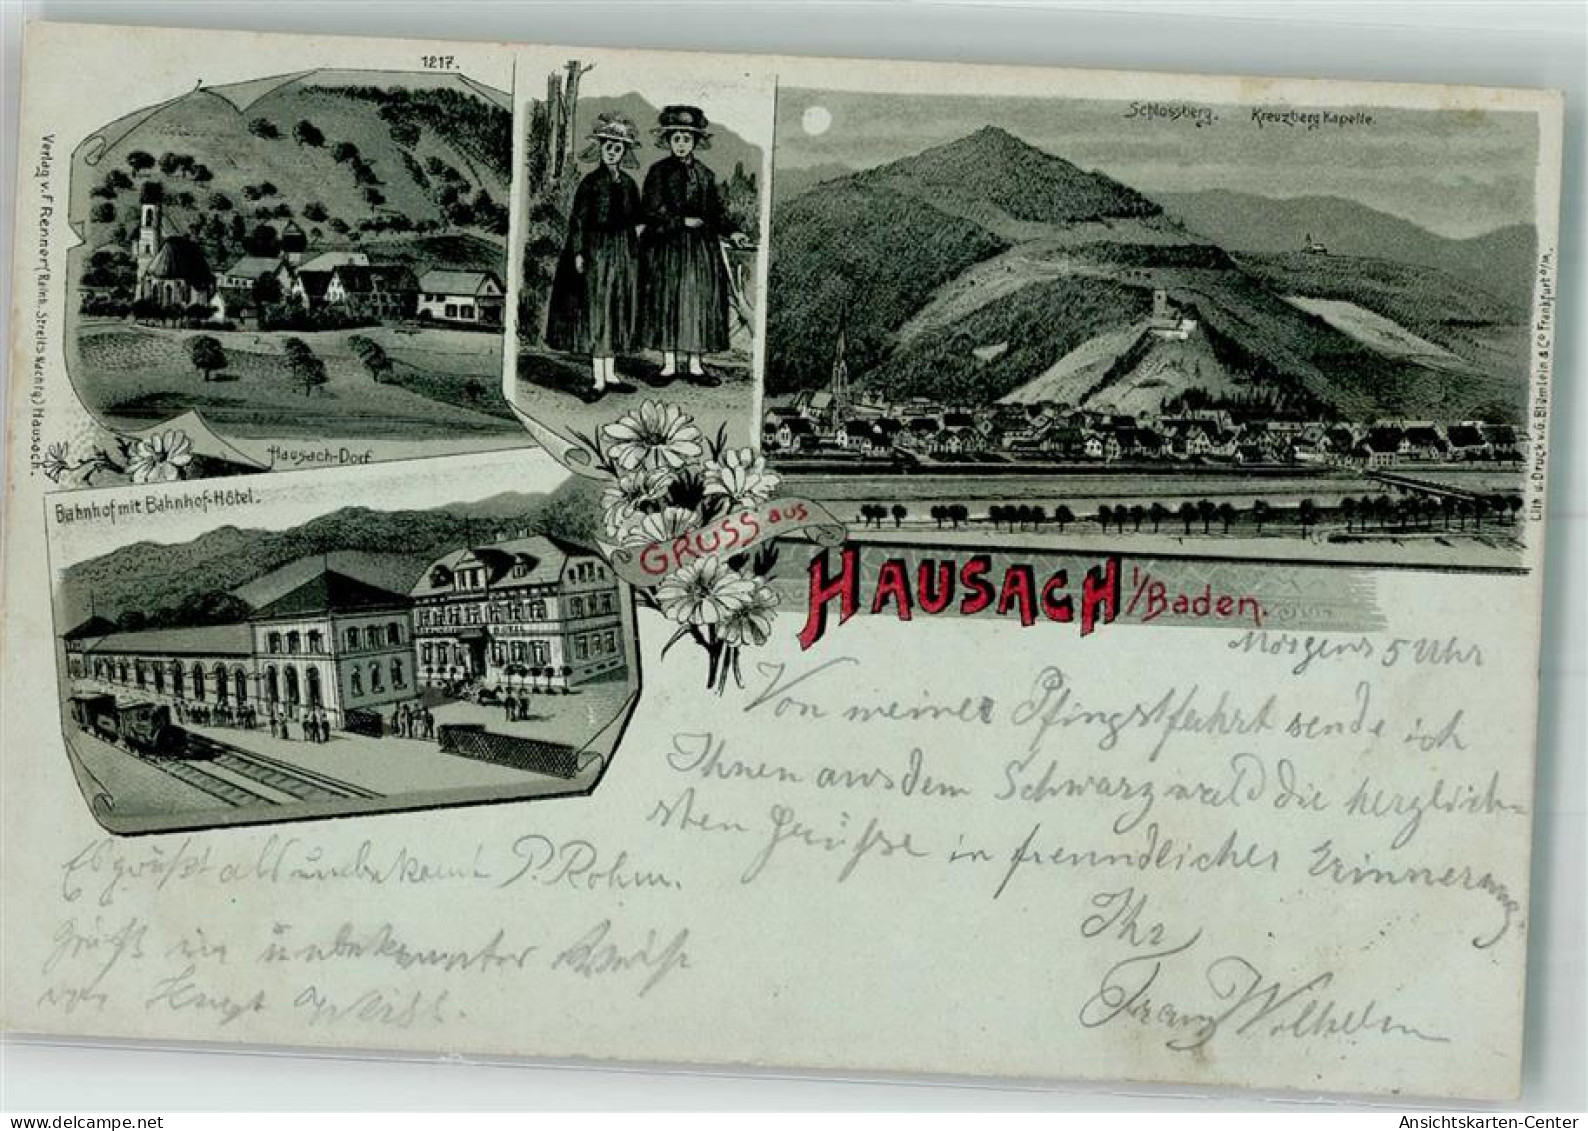 1217.
Verlag v. F. Renner (Reinh. Streits Nachfg.) Hausach.
Hausach-Dorf
Schlossberg. Kreuzberg Kapelle.
Lith. u. Druck v. G. Blümlein & Co. Frankfurt a/M.
Bahnhof mit Bahnhof-Hôtel.
GRUSS aus
HAUSACH i/Baden.
Morgens 5 Uhr
Von meiner Pfingstfahrt sende ich
Ihnen aus dem Schwarzwald die herzlich-
sten Grüße in freundlicher Erinnerung
Ihr
Franz Wilhelm
Es grüßt als unbekannt P. Rohm.
Grüßt in unbekannter Weise
von
Ansichtskarten-Center